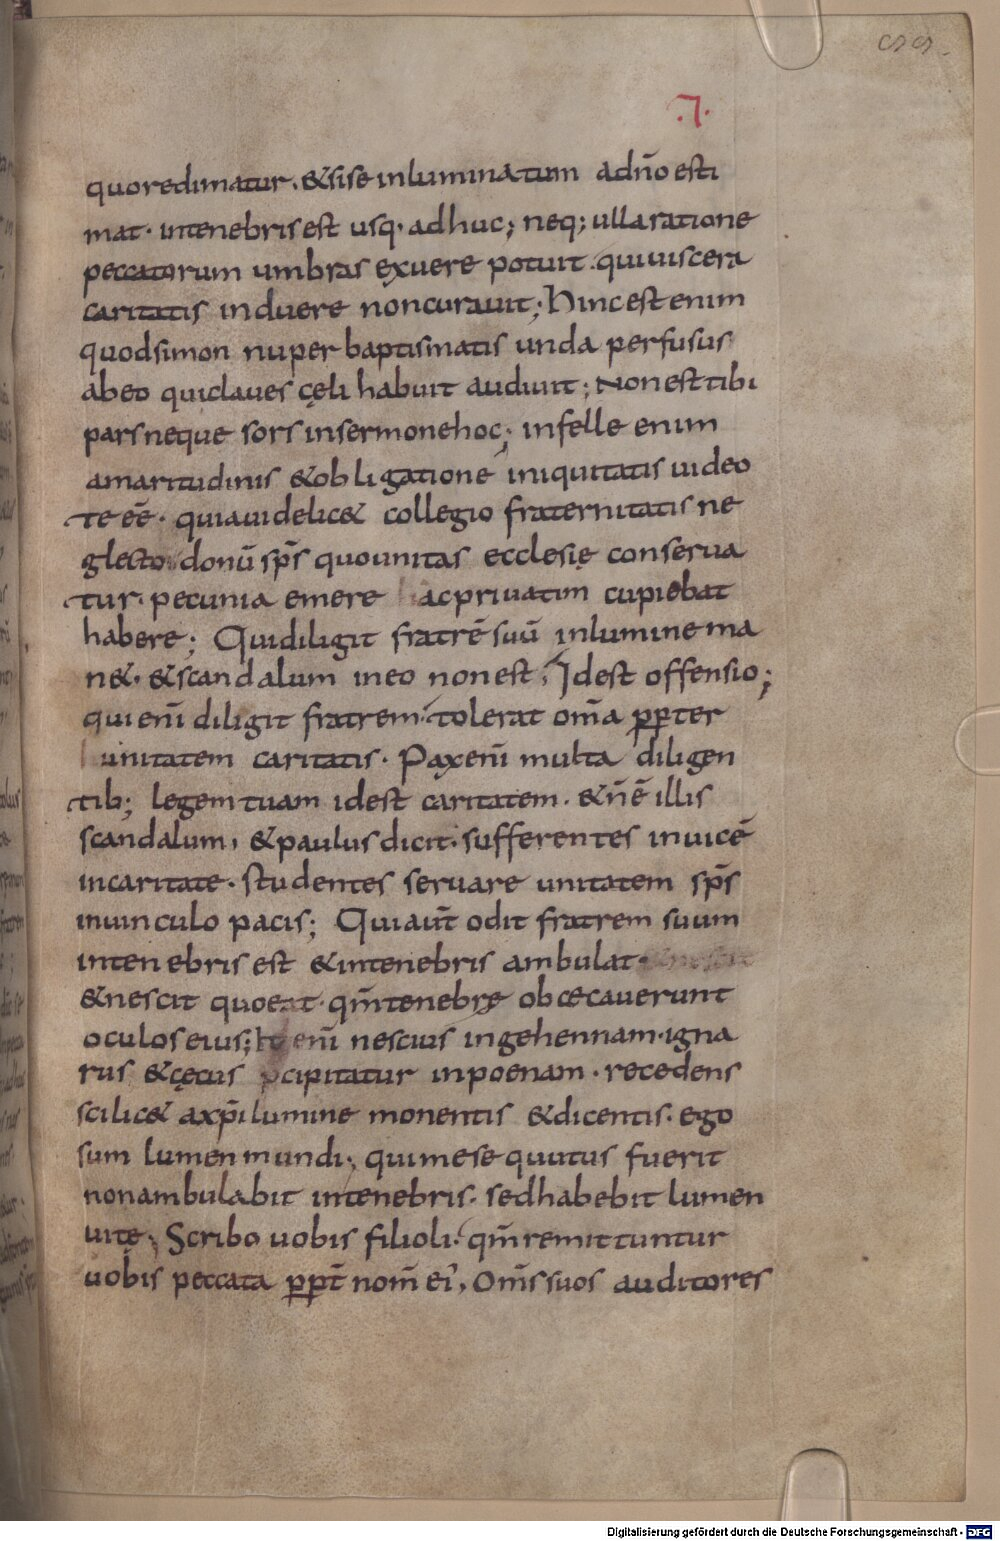 .7.
quoredimatur. &siseinluminatum adn̄oesti
mat. intenebrisest usq. adhuc; neq; ullaratione
peccatorum umbras exuere potuit. quiuiscera
caritatis induere noncurauit; Hincestenim
quodsimon nuper baptismatis unda perfusus
abeo quiclaues cęli habuit audiuit; Nonesttibi
parsneque sors insermonehoc; infelle enim
amaritudinis &obligatione iniquitatis uideo
te eē. quiauidelic& collegio fraternitatis ne
glecto donū sp̄s quounitas ecclesię conserua
tur. pecunia emere acpriuatim cupiebat
habere; Quidiligit fratrē suū inlumine ma
n&. &scandalum ineo nonest, Idest offensio;
quienī diligit fratrem. tolerat om̄a ꝓpter
unitatem caritatis. Paxenī multa diligen
tib; legem tuam idest caritatem. &n̄ē illis
scandalum, &paulus dicit. sufferentes inuicē
incaritate. studentes seruare unitatem sp̄s
inuinculo pacis; Quiaut̄ odit fratrem suum
intenebris est &intenebris ambulat.
&nescit quoeat. qm̄tenebrę obcecauerunt
oculoseius; enī nescius ingehennam. igna
rus &cęcus p̄cipitatur inpoenam. recedens
scilic& axp̄ilumine monentis &dicentis. ego
sum lumen mundi; quimesequutus fuerit
nonambulabit intenebris. sedhabebit lumen
uitę; Scribo uobis filioli. qm̄remittuntur
uobis peccata ꝓpt̄ nom̄ ei', Om̄s suos auditores
Digitalisierung gefördert durch die Deutsche Forschungsgemeinschaft - DFG